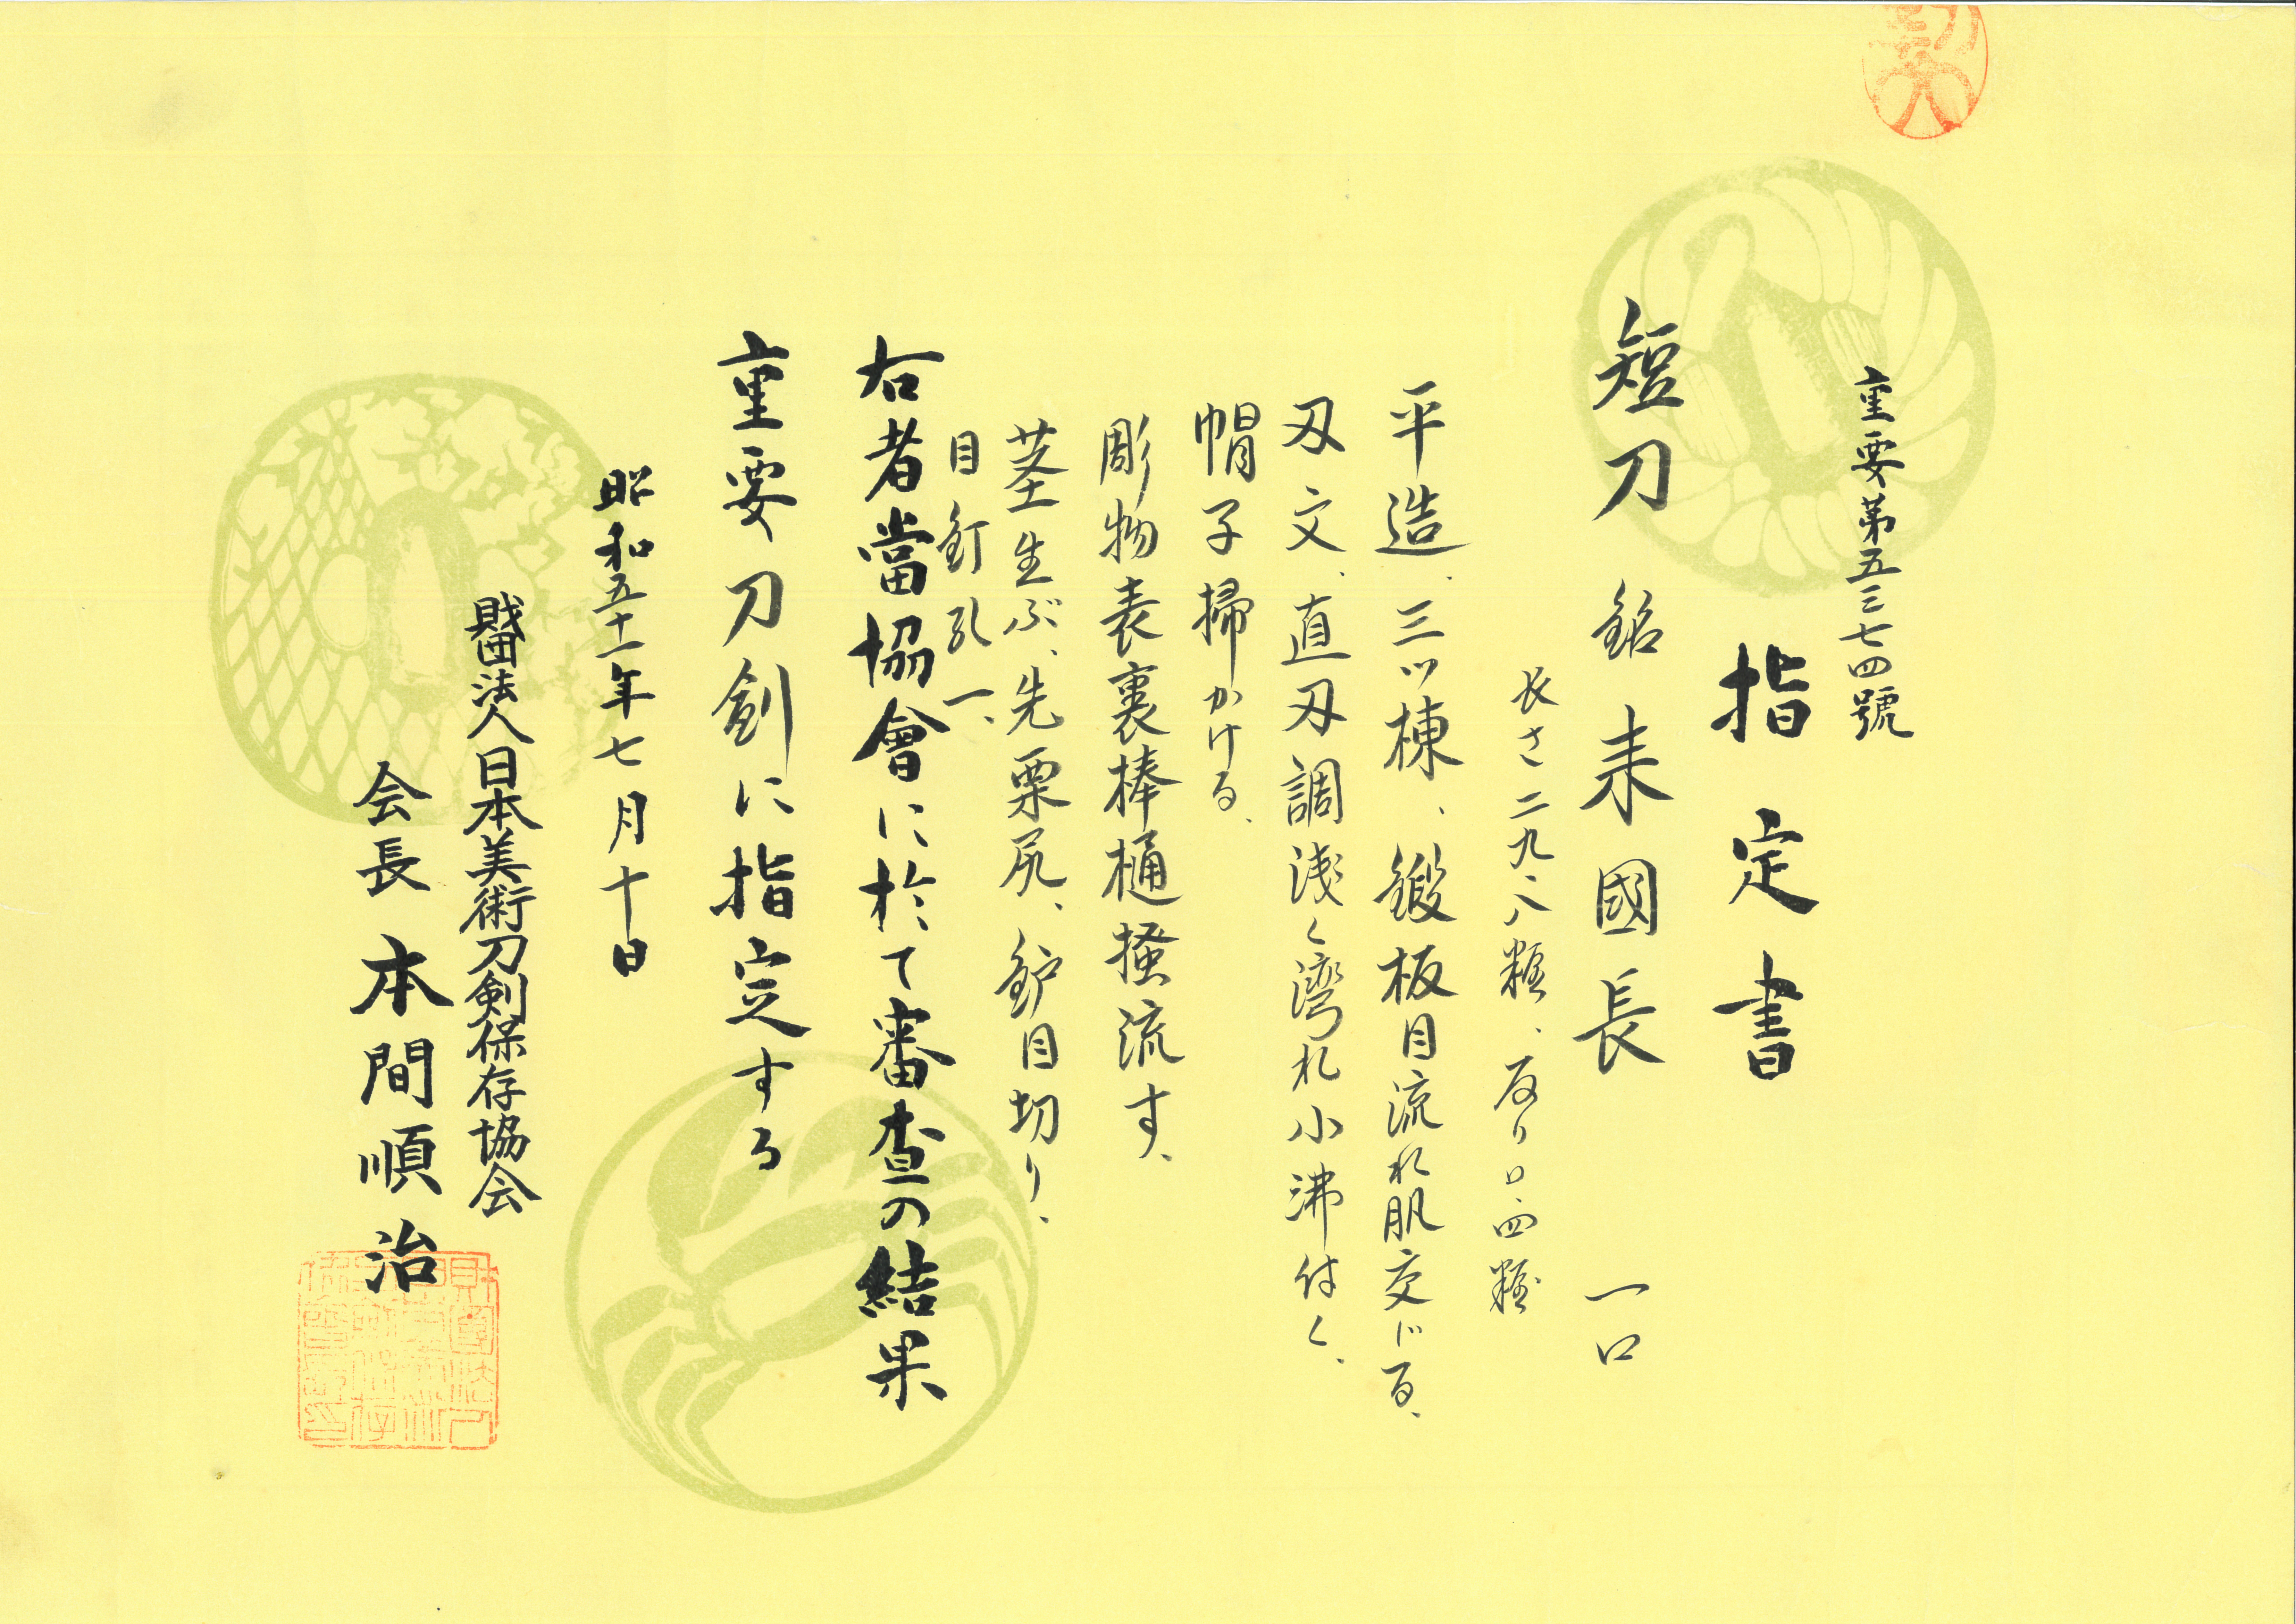 重要第五三七四號
指定書
短刀 銘 来國長 一口
長さ二九・八糎、反り〇・四糎
平造、三ツ棟、鍛板目流れ肌交じる、
刃文、直刃調浅く湾れ小沸付く、
帽子掃かける、
彫物表裏棒樋掻流す、
茎生ぶ、先栗尻、鈩目切り、
目釘孔一、
右者當協會に於て審査の結果
重要刀剣に指定する
昭和五十一年七月十日
財団法人日本美術刀剣保存協会
会長 本間順治